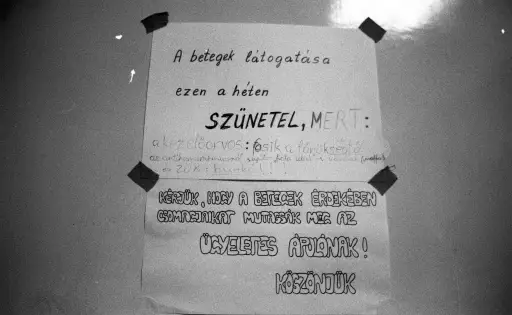 A betegek látogatása
ezen a héten
SZÜNETEL, MERT:
a kezelőorvos: fosik a főnökétől
KÉRJÜK, HOGY A BETEGEK ÉRDEKÉBEN
CSOMAGJAIKAT MUTASSÁK MEG AZ
ÜGYELETES ÁPOLÓNAK!
KÖSZÖNJÜK